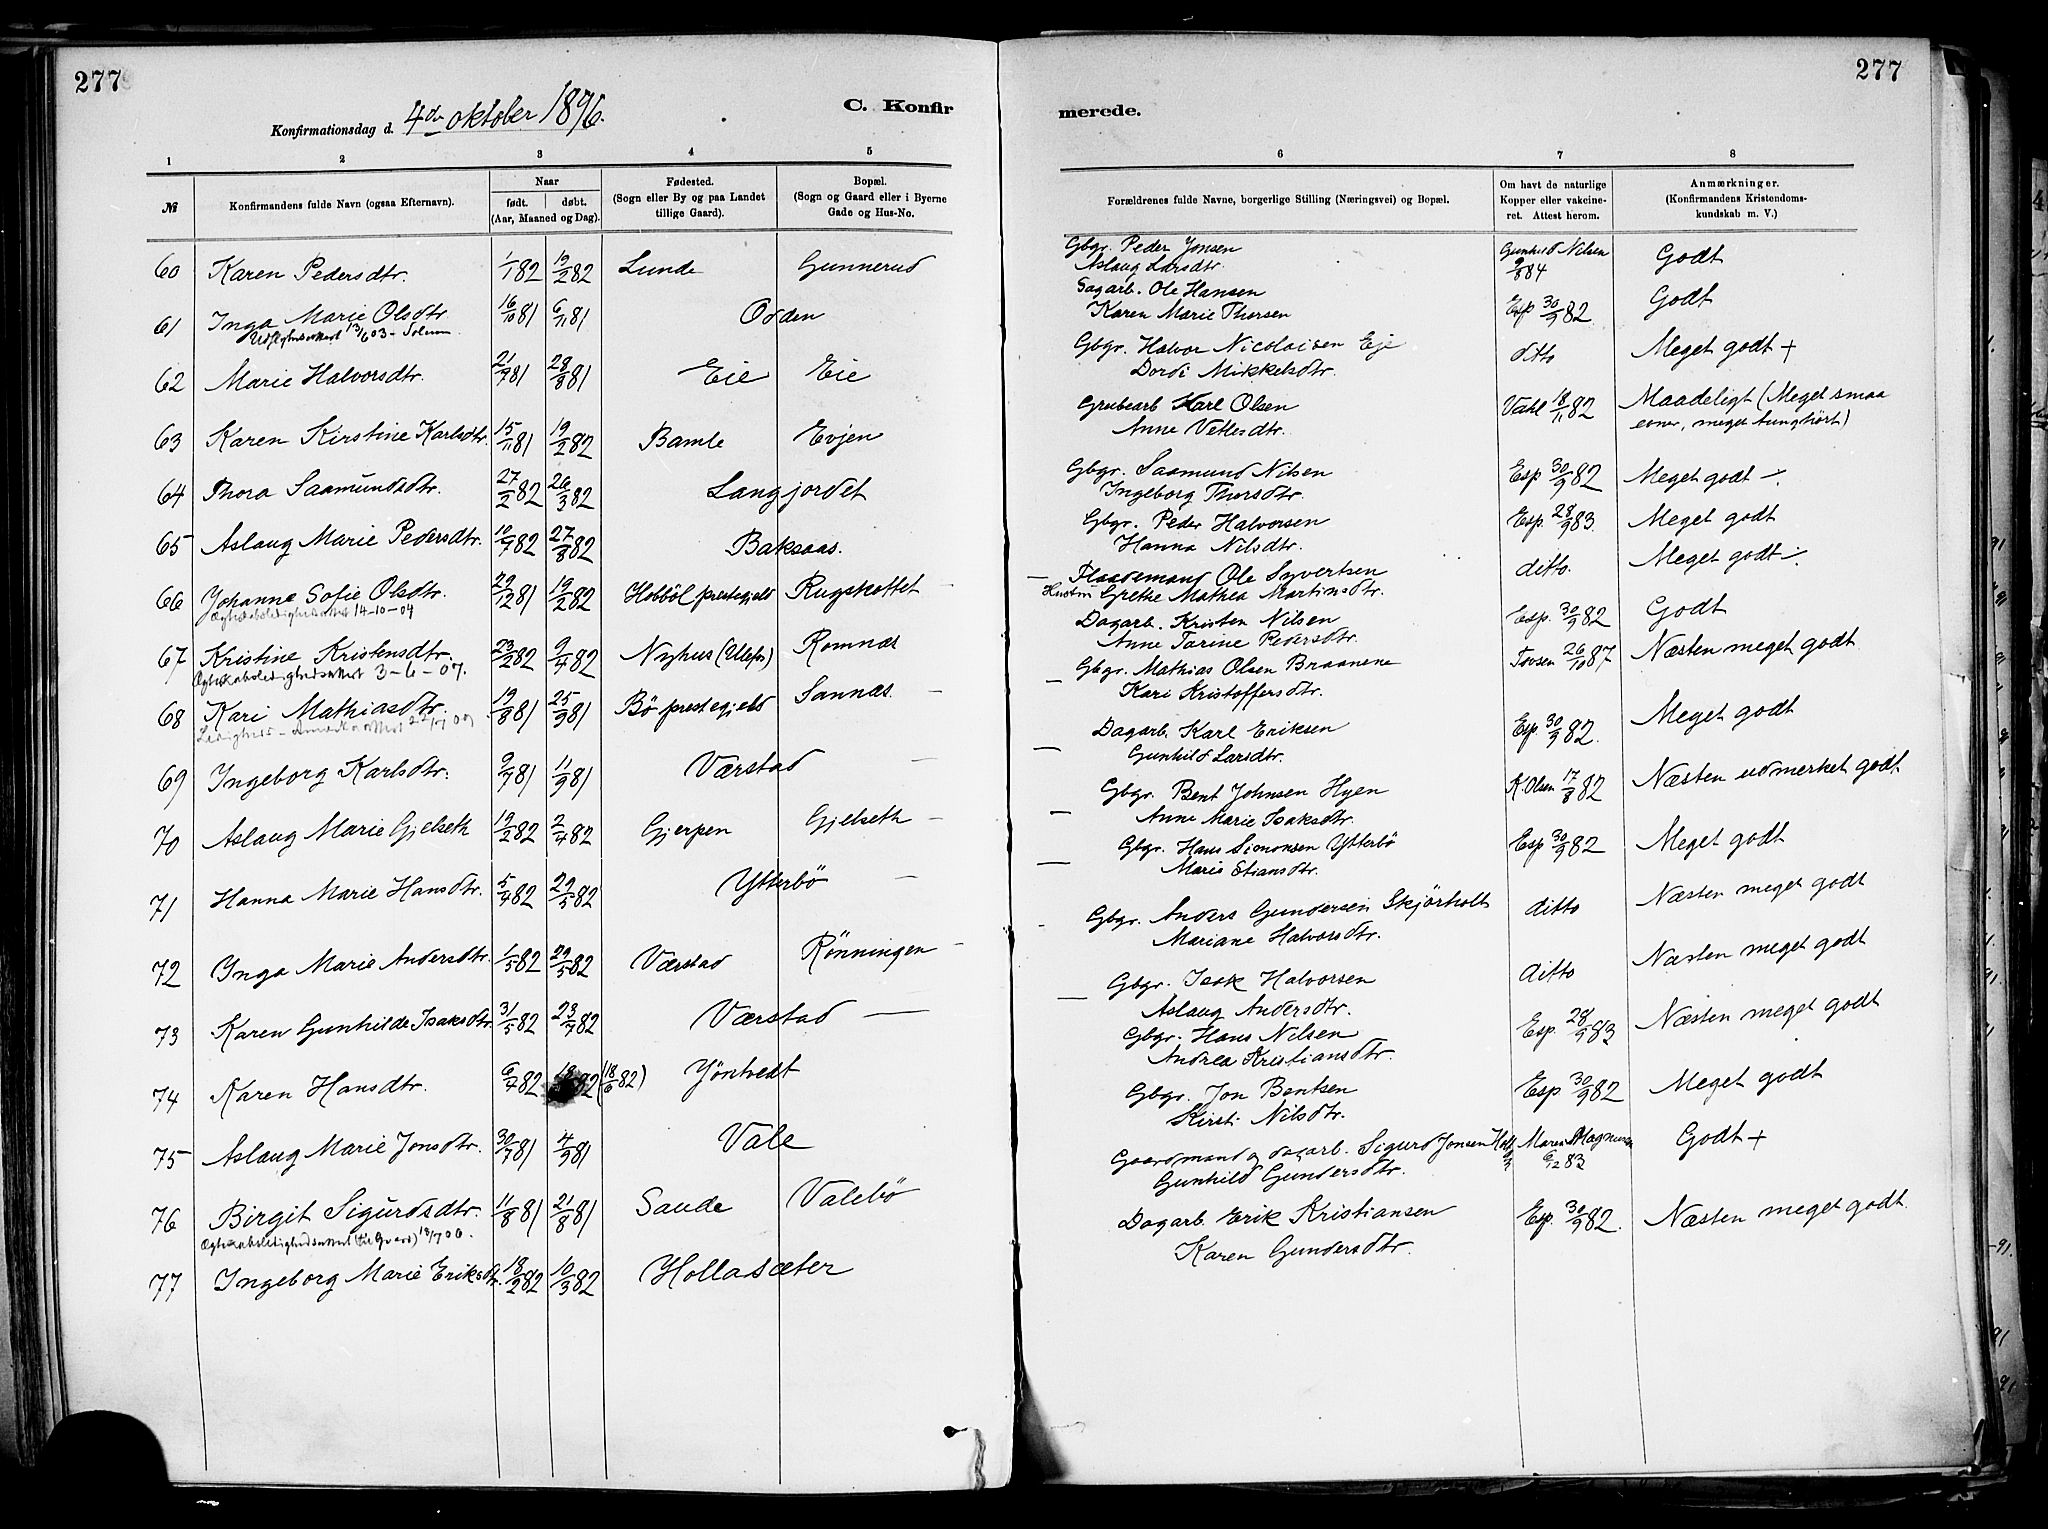 277
277
Konfirmationsdag d. 4de oktober 1896.
C. Konfir
merede.
1 2 3 4 5 6 7 8
№
Konfirmandens fulde Navn (ogsaa Efternavn).
Naar
født. døbt.
(Aar, Maaned og Dag).
Fødested.
(Sogn eller By og paa Landet
tillige Gaard).
Bopæl.
(Sogn og Gaard eller i Byerne
Gade og Hus-No.
Forældrenes fulde Navne, borgerlige Stilling (Næringsvei) og Bopæl.
Om havt de naturlige
Kopper eller vakcine-
ret. Attest herom.
Anmærkninger.
(Konfirmandens Kristendoms-
kundskab m. V.)
60 Karen Pedersdtr. 1/1 82 19/2 82 Lunde Gunnerud
Gbgr. Peder Jonsen Gunhild Nilsen Godt
Aslaug Larsdtr. 9/8 84
61 Inga Marie Olsdtr. 16/10 81 6/11 81 Orden
13/6 03 - Solum
Sagarb. Ole Hansen Esp 30/9 82 Godt
Karen Marie Thorsen
62 Marie Halvorsdtr. 21/7 81 28/8 81 Eie Eie
Gbgr. Halvor Nicolaisen Eje ditto Meget godt +
Dordi Mikkelsdtr.
63 Karen Kirstine Karlsdtr. 15/11 81 19/2 82 Bamle Evjen
Grubearb Karl Olsen Vahl 18/11 82 Maadeligt (Meget smaa
Anne Vetlesdtr. evner, meget tunghørt)
64 Thora Saamundsdtr. 27/2 82 26/3 82 Langjordet
Gbgr. Saamund Nilsen Esp 30/9 82 Meget godt -
Ingeborg Thorsdtr.
65 Aslaug Marie Pedersdtr. 10/7 82 27/8 82 Baksaas.
Gbgr. Peder Halvorsen Esp. 28/9 83. Meget godt
Hanna Nilsdtr.
66 Johanne Sofie Olsdtr. 29/12 81 19/2 82 Hobböl prestegjeld Rugskottet -
14-10-04
- Ole Syvertsen ditto. Meget godt -
Hustru Grethe Mathea Martinsdtr.
67 Kristine Kristensdtr. 23/2 82 9/4 82 Nyhus (Ulefos) Romnæs
3-6-07.
Dagarb. Kristen Nilsen Esp. 30/9 82 Godt
Anne Tarine Pedersdtr.
68 Kari Mathiasdtr. 19/8 81 25/9 81 Bö prestegjeld Sannæs -
Gbgr. Mathias Olsen Braanene Tovsen 26/10 87 Næsten meget godt
- Kari Kristoffersdtr.
69 Ingeborg Karlsdtr. 9/7 81 11/9 81 Værstad -
Dagarb. Karl Eriksen Esp 30/9 82. Meget godt
- Gunhild Larsdtr.
70 Aslaug Marie Gjelseth 19/2 82 2/4 82 Gjerpen Gjelseth -
Gbgr. Bent Johnsen Hyen K. Olsen 17/8 82 Næsten udmerket godt
- Anne Marie Isaksdtr.
71 Hanna Marie Hansdtr. 5/4 82 29/5 82 Ytterbö -
Gbgr. Hans Simonsen Ytterbö Esp 30/9 82 Meget godt
- Maris Stiansdtr.
72 Inga Marie Andersdtr. 1/5 82 29/5 82 Værstad Rönningen -
Gbgr. Anders Gundersen Skjörholt ditto Næsten meget godt
- Mariane Halvorsdtr.
73 Karen Gunhilde Isaksdtr. 31/5 82 23/7 82 Værstad -
Gbgr. Isak Halvorsen ditto Næsten meget godt
- Aslaug Andersdtr.
74 Karen Hansdtr. 6/7 82 82 (18/6 82) Yöntvedt
Gbgr. Hans Nilsen Esp. 28/9 83 Næsten meget godt
Andrea Kristiansdtr.
75 Aslaug Marie Jonsdtr. 30/7 81 4/9 81 Vale
Gbgr. Jon Bentsen Esp 30/9 82 Meget godt
Kirsti Nilsdtr.
76 Birgit Sigurdsdtr. 11/8 81 21/8 81 Saude Valebö
Gaardmand og dagarb. Sigurd Jonsen Maren Magnusen Godt +
Gunhild Gundersdtr. 6/12 83
77 Ingeborg Marie Eriksdtr. 18/2 82 10/3 82 Hollasæter
Dagarb. Erik Kristiansen Esp. 30/9 82. Næsten meget godt.
Karen Gundersdtr.